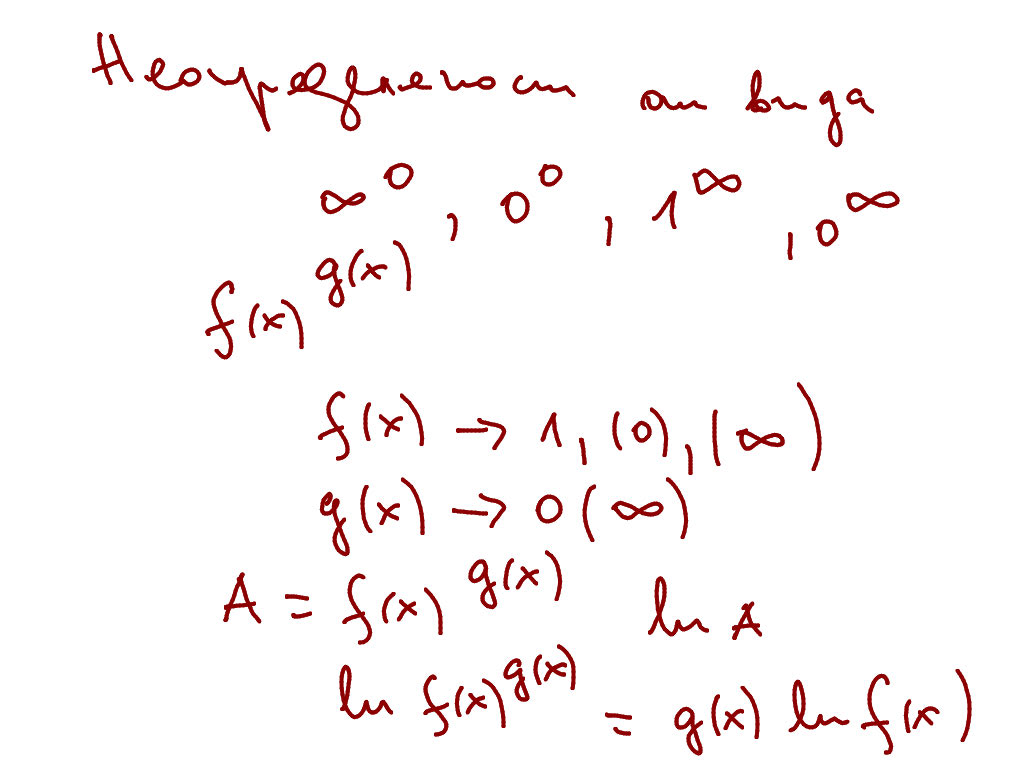 Неопределеност от вида
∞^0, 0^0, 1^∞, 0^∞
f(x)^g(x)
f(x) → 1, (0), (∞)
g(x) → 0 (∞)
A = f(x)^g(x) ln A
ln f(x)^g(x) = g(x) ln f(x)